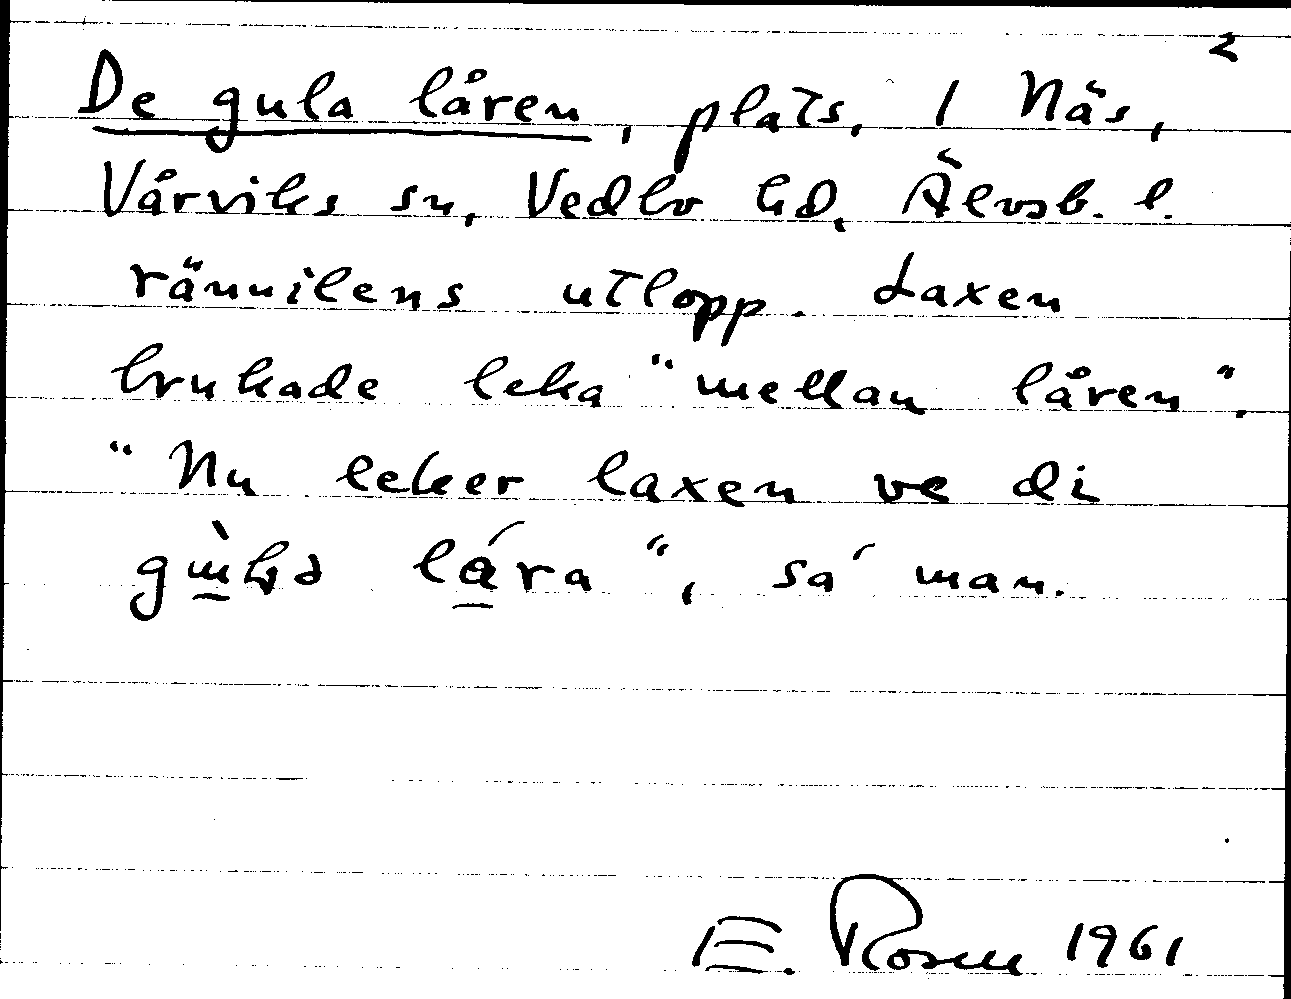 2
De gula låren, plats, 1 Näs,
Vårviks sn, Vedbo hd, Älvsb. l.
rännilens utlopp. Laxen
brukade leka "mellan låren".
"Nu leker laxen ve di
lára", sa' man.
E. Rosen 1961